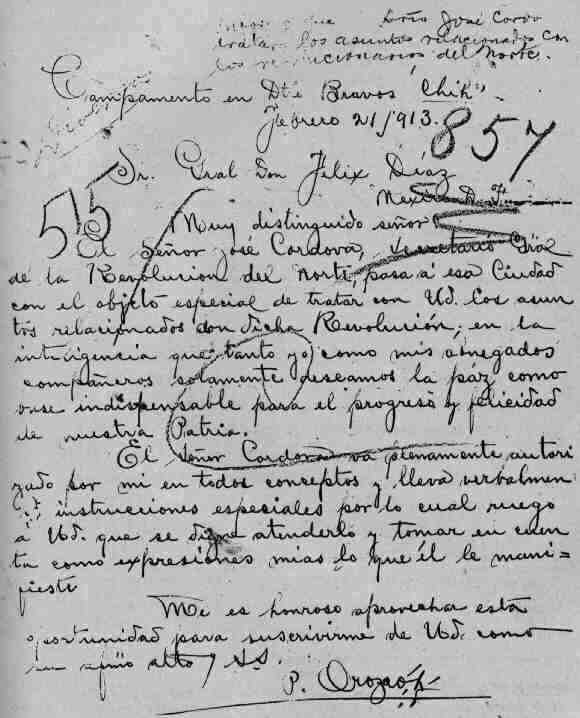 que Srio José Cordo
tratar los asuntos relacionados con
los revolucionarios del Norte.
Campamento en Dtō Bravos "Chih".
Febrero 21/1913.
857
Sr. Gral Don Felix Díaz
Mexico D. F.
515
Muy distinguido señor
El Señor José Cordova, Secretario Gral
de la Revolucion del Norte, pasa á esa Ciudad
con el objeto especial de tratar con Ud. los asun
tos relacionados con dicha Revolución; en la
inteligencia que tanto yo como mis abnegados
compañeros solamente deseamos la páz como
base indispensable para el progreso y felicidad
de nuestra Patria.
El Señor Cordova va plenamente autori
zado por mi en todos conceptos y lleva verbalmen
instrucciones especiales por lo cual ruego
á Ud. que se digne atenderlo y tomar en cuen
ta como expresiones mias lo que él le mani=
fieste
Me es honroso aprovechar esta
oportunidad para suscrivirme de Ud. como
su afmo atto y S.S.
P. Orozco